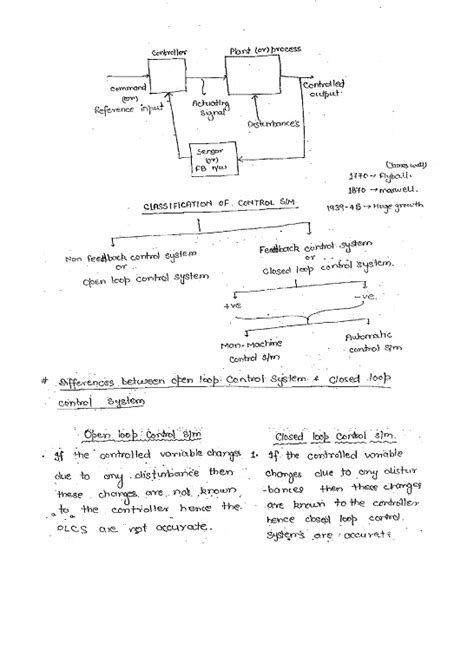 Controller
Plant (or) process
Command
(or)
Reference input
Actuating
Signal
Controlled
output.
Disturbances
Sensor
(or)
FB n/w
1770 → Flyball.
1870 → maxwell.
1939-45 → Huge growth
CLASSIFICATION OF CONTROL S/M
Non feedback control system
or
Open loop control system
Feedback control system
or
Closed loop control system.
+ve
-ve.
Man-Machine
Control s/m
Automatic
control s/m
# Differences between open loop Control System & Closed loop
control System
Open loop Control s/m
. If the controlled variable changes
due to any disturbance then
these changes are not known
to the controller hence the
OLCS are not accurate.
Closed loop Control s/m.
1. If the controlled variable
changes due to any distur
-bances then these changes
are known to the controller
hence closed loop control
systems are accurate